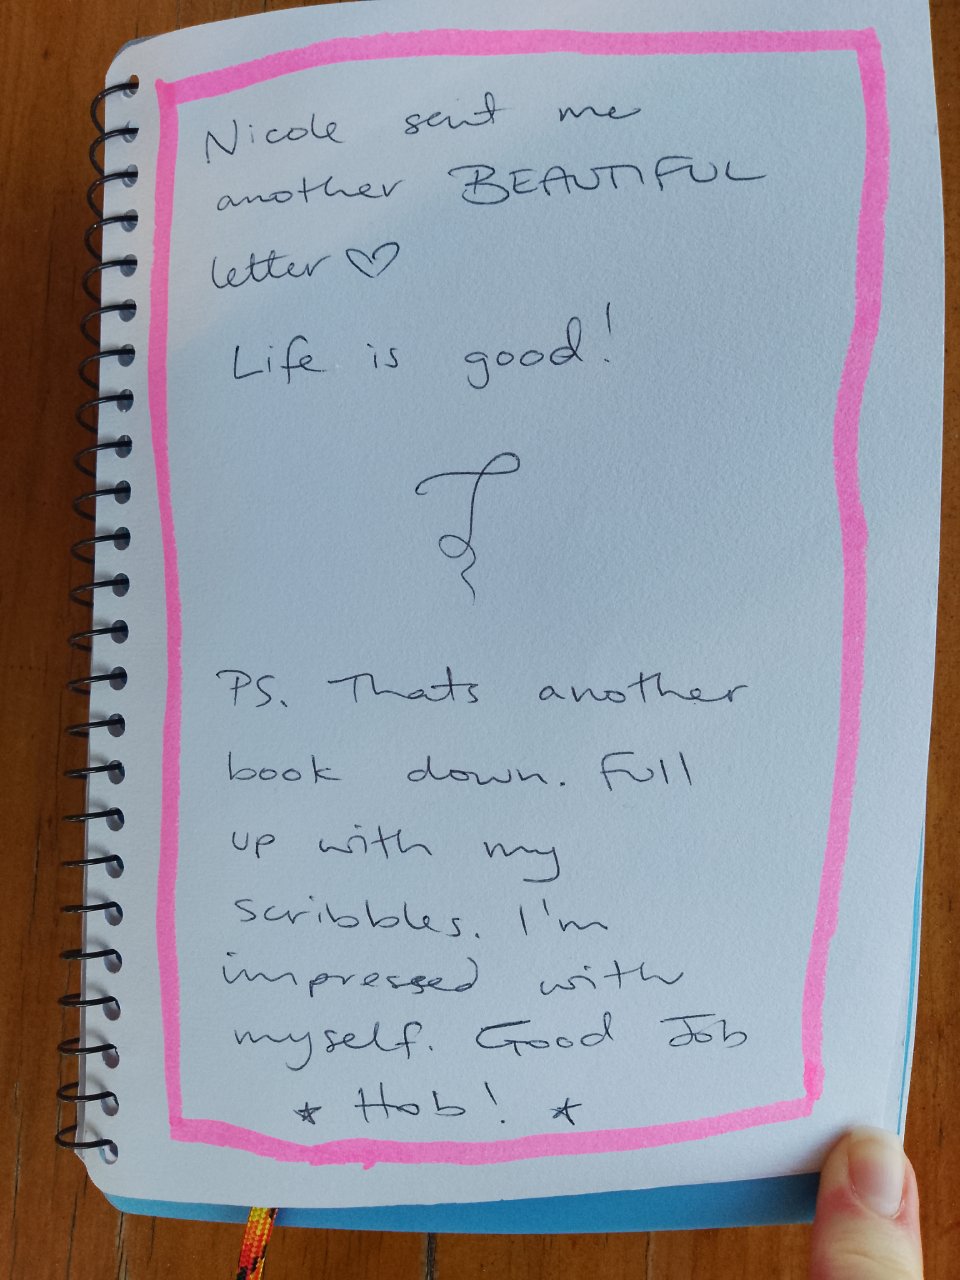 Nicole sent me
another BEAUTIFUL
letter ♡
Life is good!
PS. Thats another
book down. Full
up with my
scribbles. I'm
impressed with
myself. Good Job
★ Hob! ★